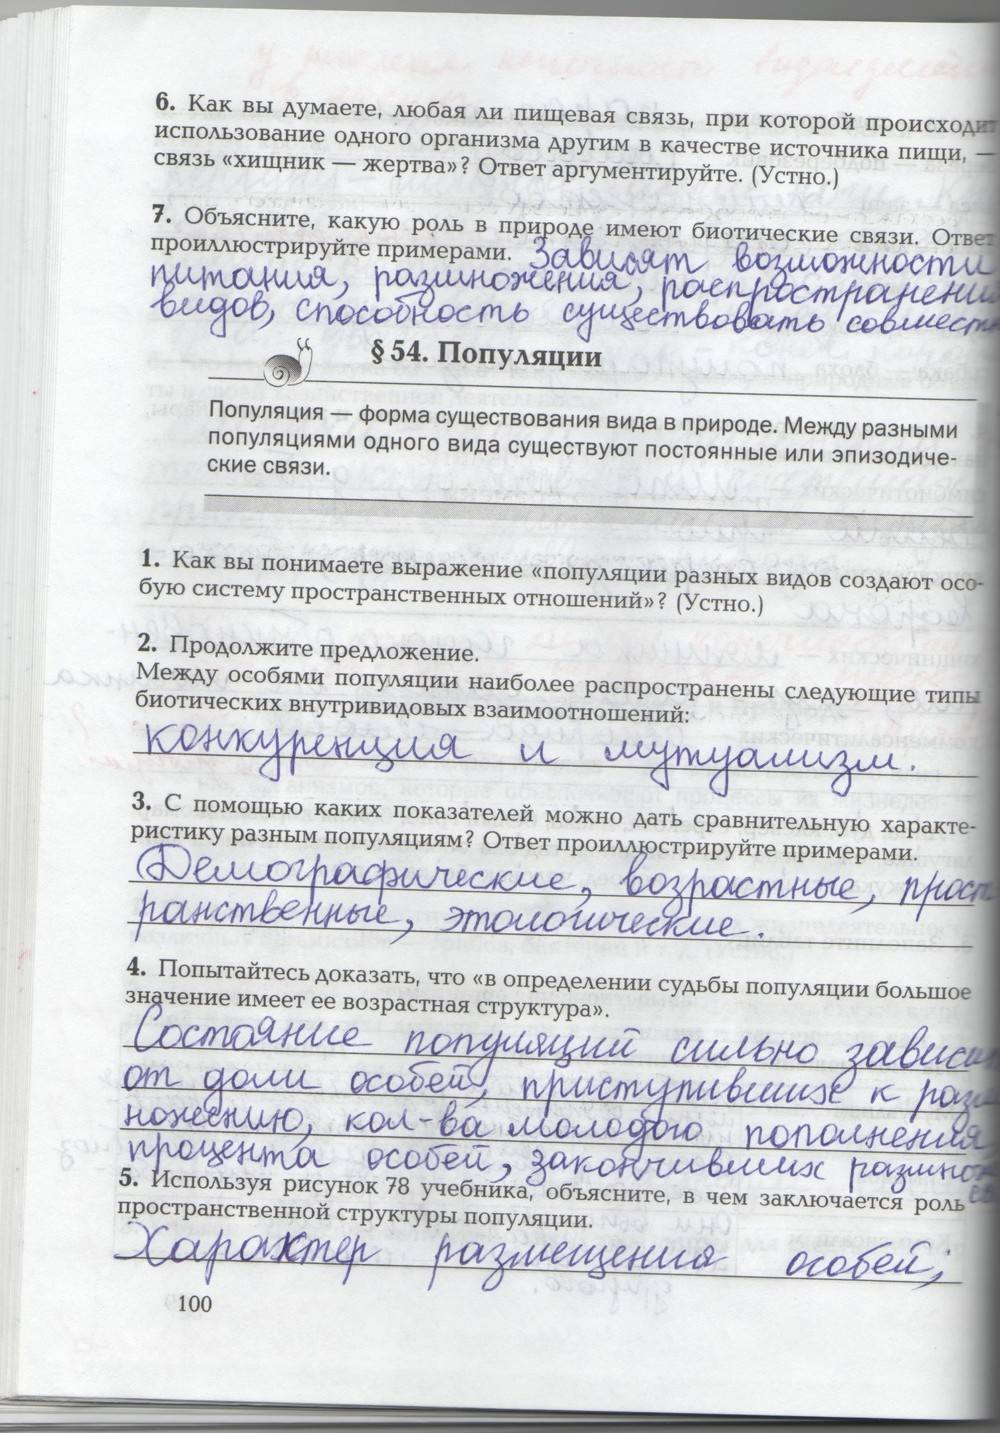 6. Как вы думаете, любая ли пищевая связь, при которой происходит
использование одного организма другим в качестве источника пищи, —
связь «хищник — жертва»? Ответ аргументируйте. (Устно.)
7. Объясните, какую роль в природе имеют биотические связи. Ответ
проиллюстрируйте примерами. Зависят возможности
питания, размножения, распространения
видов, способность существовать совмест
§ 54. Популяции
Популяция — форма существования вида в природе. Между разными
популяциями одного вида существуют постоянные или эпизодиче-
ские связи.
1. Как вы понимаете выражение «популяции разных видов создают осо-
бую систему пространственных отношений»? (Устно.)
2. Продолжите предложение.
Между особями популяции наиболее распространены следующие типы
биотических внутривидовых взаимоотношений:
конкуренция и мутуализм.
3. С помощью каких показателей можно дать сравнительную характе-
ристику разным популяциям? Ответ проиллюстрируйте примерами.
Демографические, возрастные, прост
ранственные, этологические.
4. Попытайтесь доказать, что «в определении судьбы популяции большое
значение имеет ее возрастная структура».
Состояние популяций сильно зависит
от доли особей, приступивших к разм
ножению, кол-ва молодого пополнения,
процента особей, закончивших размнож
5. Используя рисунок 78 учебника, объясните, в чем заключается роль
пространственной структуры популяции.
Характер размещения особей;
100